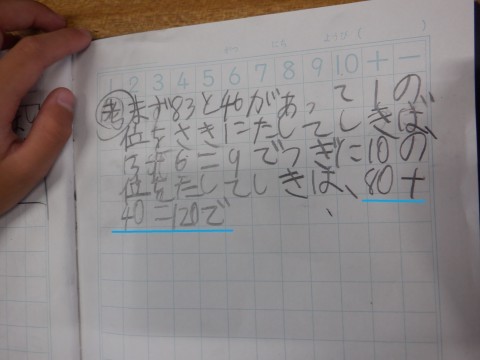 1 2 3 4 5 6 7 8 9 10 + −
考 まず83と46があって1の
位をさきにたしてしきは、
3+6=9でつぎに10の
位をたしてしきは、80+
40=120で